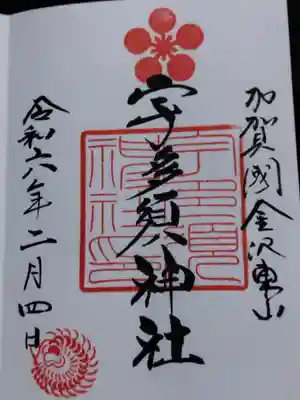 加賀國金沢東山
宇多須神社
令和六年二月四日